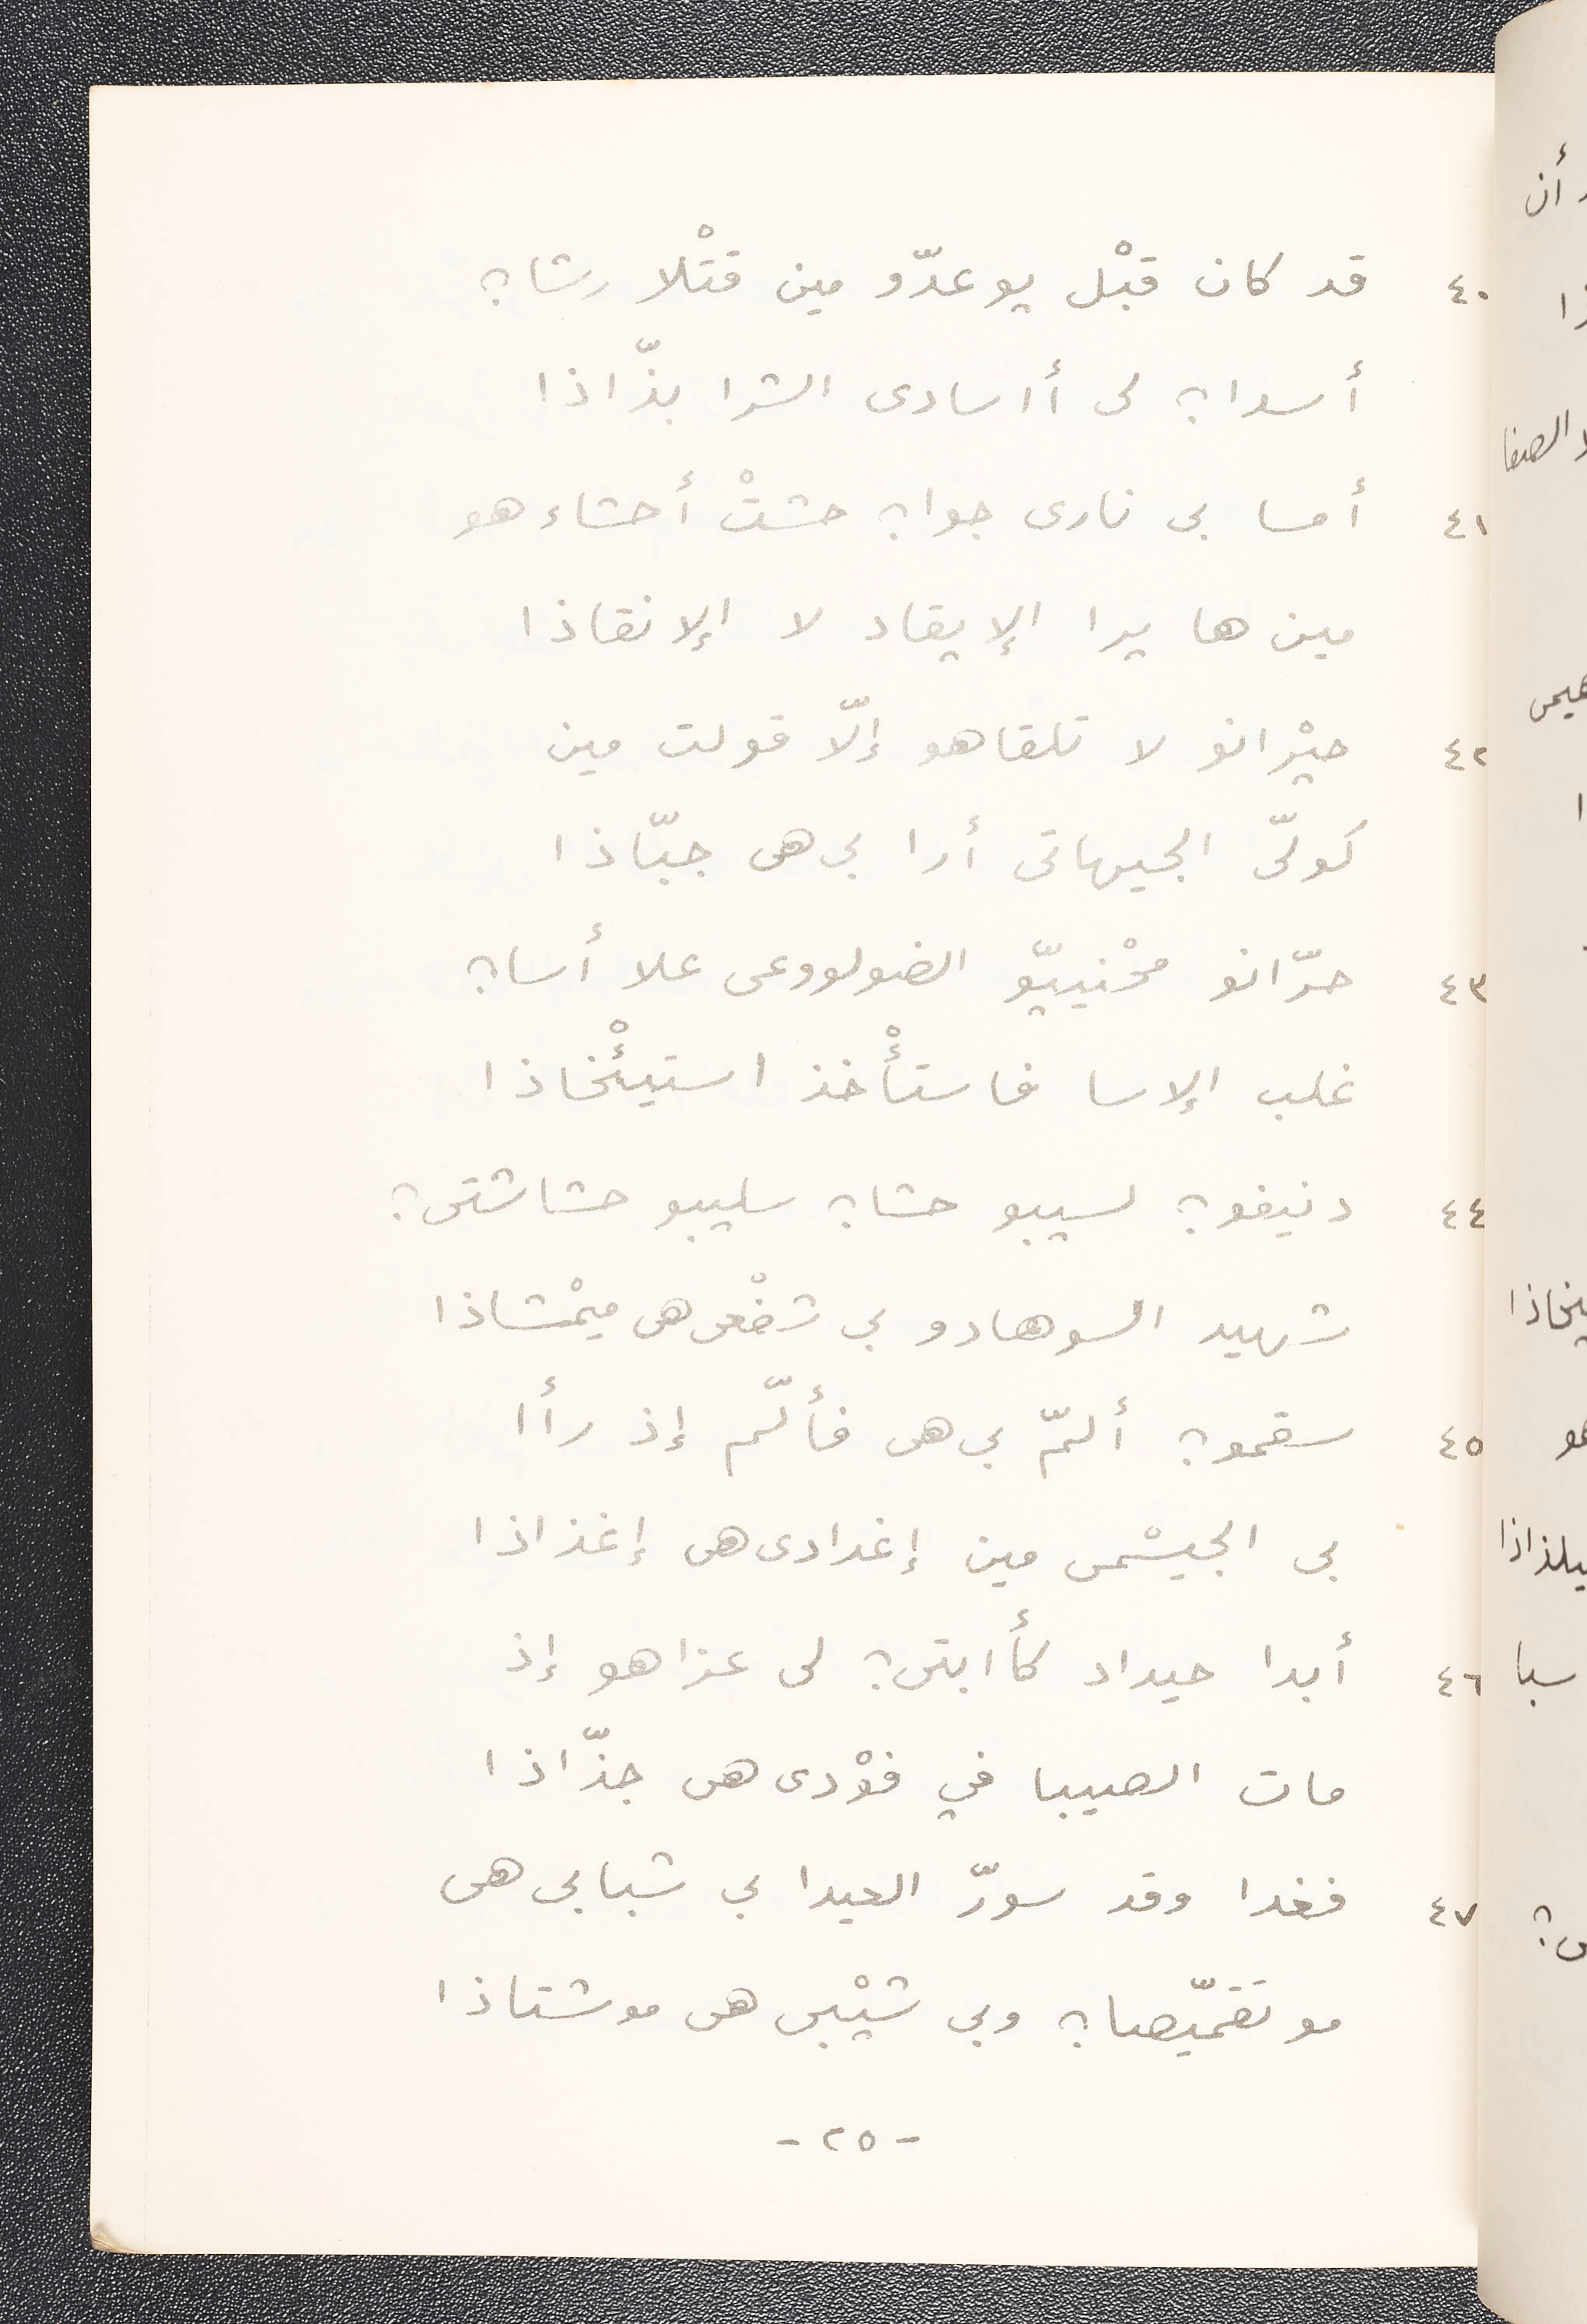 ٤٠ قد كان قبْل يوعدّو مين قتْلا رشا؟
أسدا؟ لى أاسادى الشرا بذّاذا
٤١ أمسا بى نارى جوا؟ حشتْ أحشاءهو
مين ها يرا الإيقاد لا الإنقاذا
٤٢ حيْرانو لا تلقاهو إلّا قولت مين
كولّى الجيهاتى أرا بى هى جبّاذا
٤٣ حرّانو محْنييّو الضولووعى علا أسا؟
غلب الإسا فاستأْخذ استيئْخاذا
٤٤ دنيفو؟ لسيبو حشا؟ سليبو حشاشتى؟
شهيد السوهادو بى شفْعى هى ميمْشاذا
٤٥ سقمو؟ ألمّ بى هى فألّم إذ رأا
بى الجيسْمى مين إغدادى هى إغذاذا
٤٦ أبدا حيداد كأابتى؟ لى عزاهو إذ
مات الصيبا في فوْدى هى جذّاذا
٤٧ فغدا وقد سورّ العيدا بى شبابى هى
موتقمّيصا؟ وبى شيْبى هى موشتاذا
- ٢٥ -